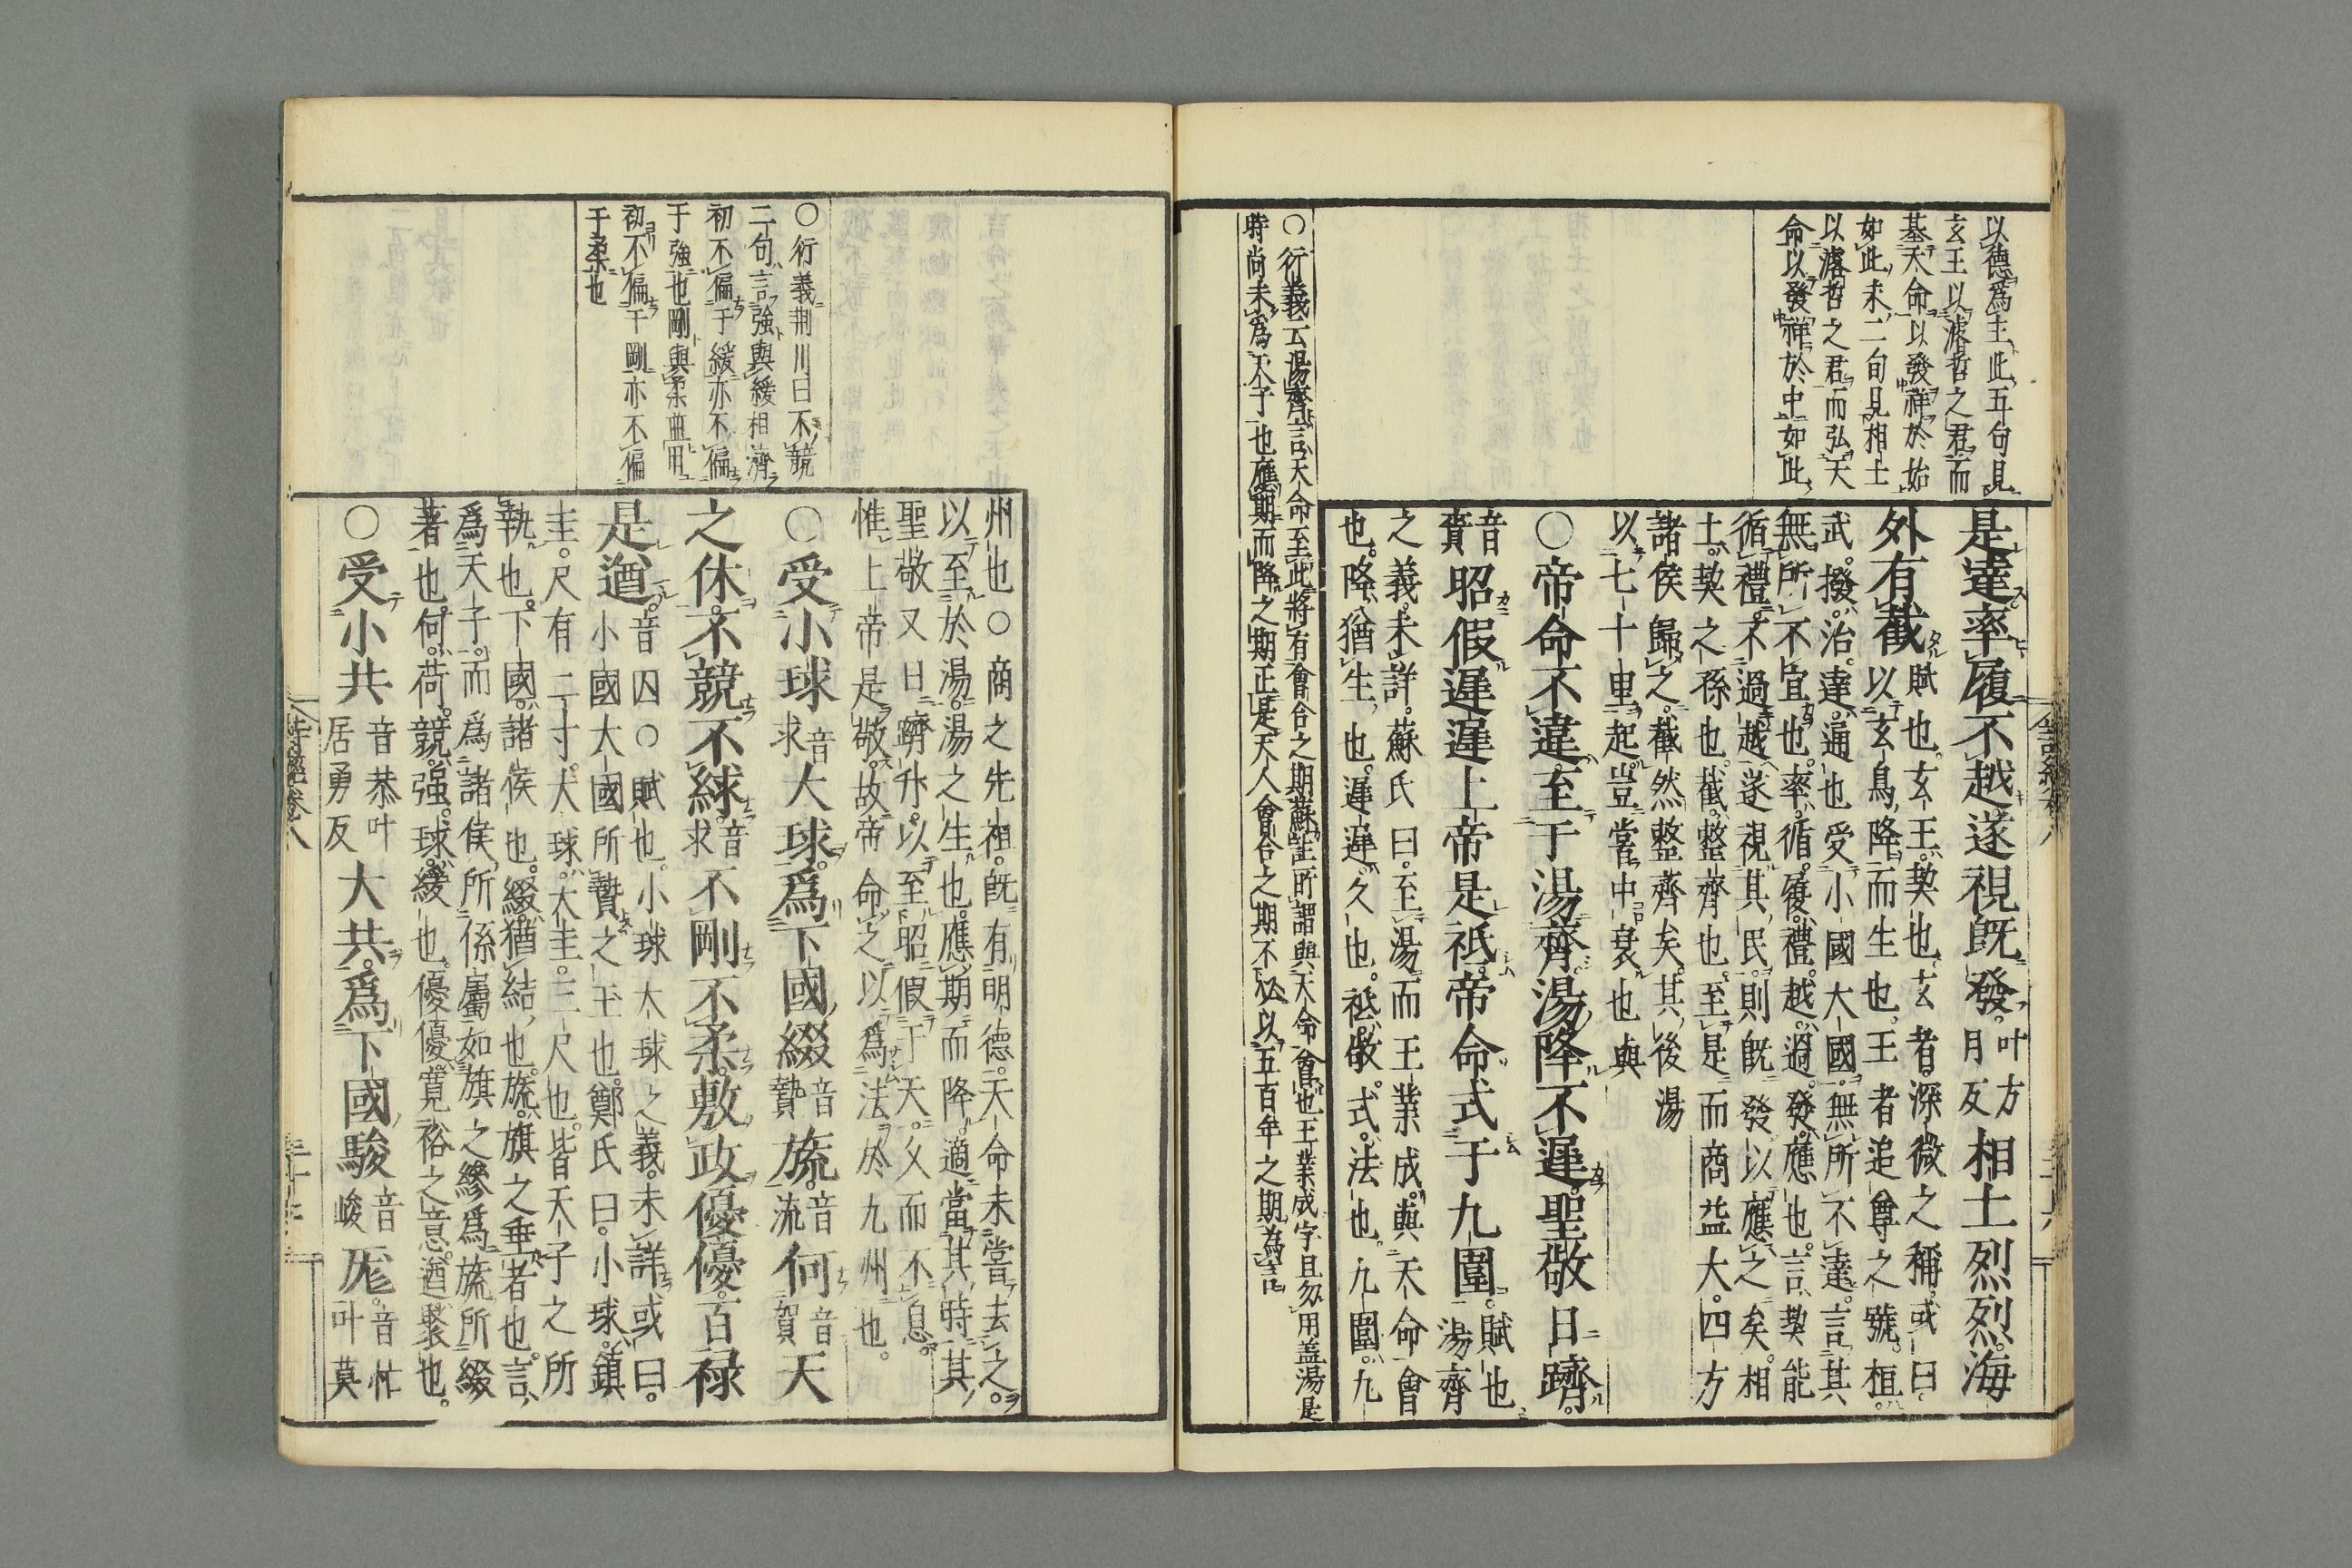 以德為主此五句見
玄王以濬哲之君而
基天命以發祥於始
如此末二句見相土
以濬哲之君而弘天
命以發祥於中如此
是達率履不越遂視既發叶方月反相土烈烈海
外有截賦也玄王契也玄者深微之稱或曰
以玄鳥降而生也王者追尊之號桓
武撥治達通也受小國大國無所不達言其
無所不宜也率循履禮越過發應也言契能
循禮不過越遂視其民則既發以應之矣相
土契之孫也截整齊也至是而商益大四方
諸侯歸之截然整齊矣其後湯
以七十里起豈嘗中衰也與
○帝命不違至于湯齊湯降不遲聖敬日躋
音賷昭假遲遲上帝是祗帝命式于九圍賦也湯齊
之義未詳蘇氏曰至湯而王業成與天命會
也降猶生也遲遲久也祗敬式法也九圍九
○衍義云湯齊言天命至此將有會合之期蘇註所謂與天命會也王業成字且勿用蓋湯是
時尚未為天子也應期而降之期正是天人會合之期不必以五百年之期為言
州也○商之先祖既有明德天命未嘗去之
以至於湯湯之生也應期而降適當其時其
聖敬又日躋升以至昭假于天久而不息
惟上帝是敬故帝命之以為法於九州也
○衍義荆川曰不競
二句言強與緩相濟
初不偏于緩亦不偏
于強也剛與柔並用
初不偏于剛亦不偏
于柔也
○受小球音求大球為下國綴音贅旒音流何音賀天
之休不競不絿音求不剛不柔敷政優優百禄
是遒音囚○賦也小球大球之義未詳或曰
小國大國所贄之玉也鄭氏曰小球鎮
圭尺有二寸大球大圭三尺也皆天子之所
執也下國諸侯也綴猶結也旒旗之垂者也言
為天子而為諸侯所係屬如旗之縿為旒所綴
著也何荷競強絿緩也優優寬裕之意遒聚也
○受小共音恭叶居勇反大共為下國駿音峻厖音忙叶莫
詩經卷八